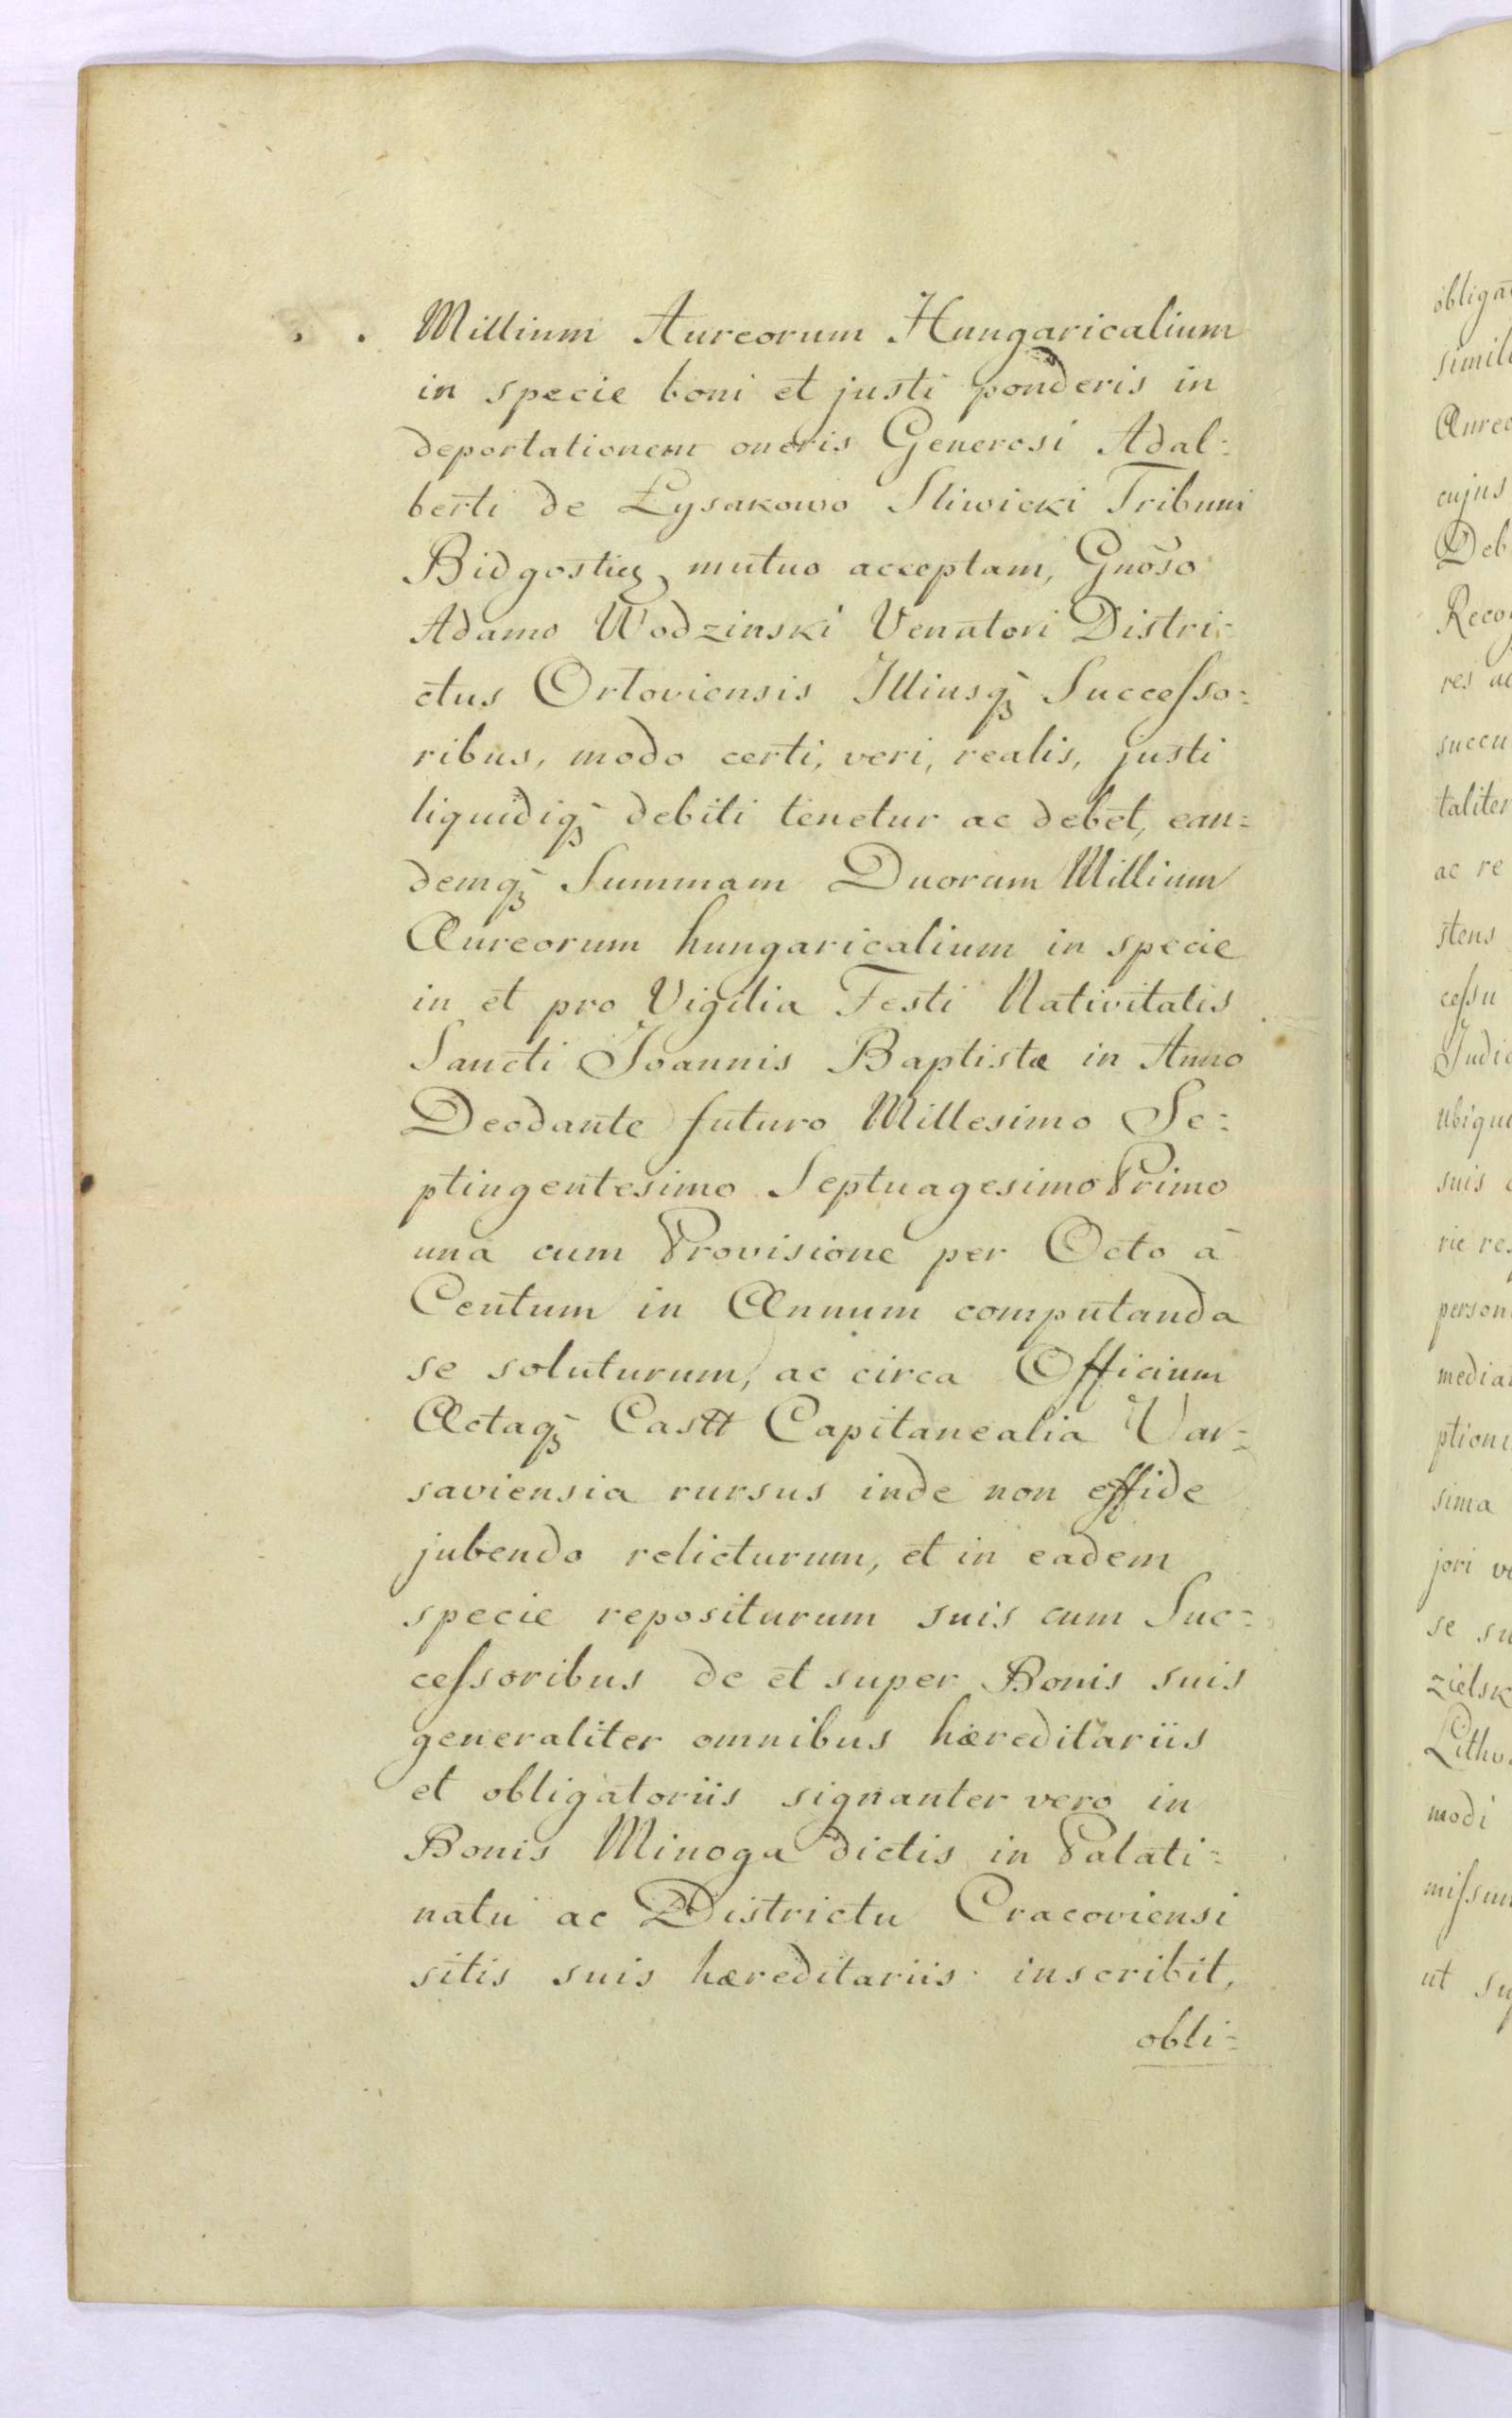 Millium Aureorum Hungaricalium
in specie boni et justi ponderis in
deportationem oneris Generosi Adal:
berti de Łysakowo Sliwicki Tribuni
Bidgostien mutuo acceptam, Gnoso
Adamo Wodzinski Venatori Distri:
ctus Orloviensis Illiusq̃ Successo:
ribus, modo certi, veri, realis, justi
liquidiq̃ debiti tenetur ac debet, ean:
demq̃ Summam Duorum Millium
Aureorum hungaricalium in specie
in et pro Vigilia Festi Nativitatis
Sancti Joannis Baptistæ in Anno
Deodante futuro Millesimo Se:
ptingentesimo Septuagesimo Primo
una cum Provisione per Octo à
Centum in Annum computanda
se soluturum, ac circa Officium
Actaq̃ Castt Capitanealia Var:
saviensia rursus inde non effide
jubendo relicturum, et in eadem
specie repositurum suis cum Suc:
cessoribus de et super Bonis suis
generaliter omnibus hæreditariis
et obligatoriis signanter vero in
Bonis Minoga dictis in Palati:
natu ac Districtu Cracoviensi
sitis suis hæreditariis inscribit,
obli:
obliga
simil
Aureo
cujus
Deb
Reco
res ac
succu
taliter
ac re
stens
cessu
Judic
ubique
suis
rie res
person
media
ptioni
sima
jori ve
se su
zielsk
Lithva
modi
missum
ut su